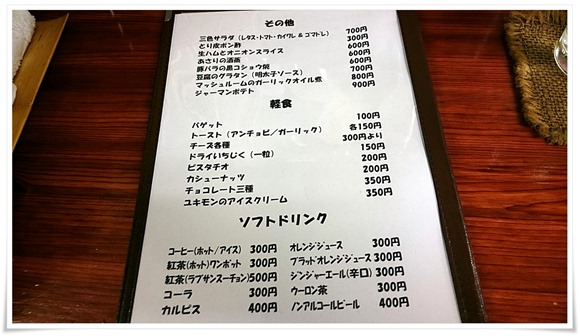 その他
三色サラダ（レタス・トマト・カイワレ & ゴマトレ） 700円
とり皮ポン酢 300円
生ハムとオニオンスライス 600円
あさりの酒蒸 600円
豚バラの黒コショウ焼 600円
豆腐のグラタン（明太子ソース） 700円
マッシュルームのガーリックオイル煮 800円
ジャーマンポテト 900円
軽食
バゲット 100円
トースト（アンチョビ／ガーリック） 各150円
チーズ各種 300円より
ドライいちじく（一粒） 150円
ピスタチオ 200円
カシューナッツ 200円
チョコレート三種 350円
ユキモンのアイスクリーム 350円
ソフトドリンク
コーヒー（ホット／アイス） 300円 オレンジジュース 300円
紅茶（ホット）ワンポット 300円 ブラッドオレンジジュース 300円
紅茶（ラプサンスーチョン）500円 ジンジャーエール（辛口） 300円
コーラ 300円 ウーロン茶 300円
カルピス 400円 ノンアルコールビール 400円